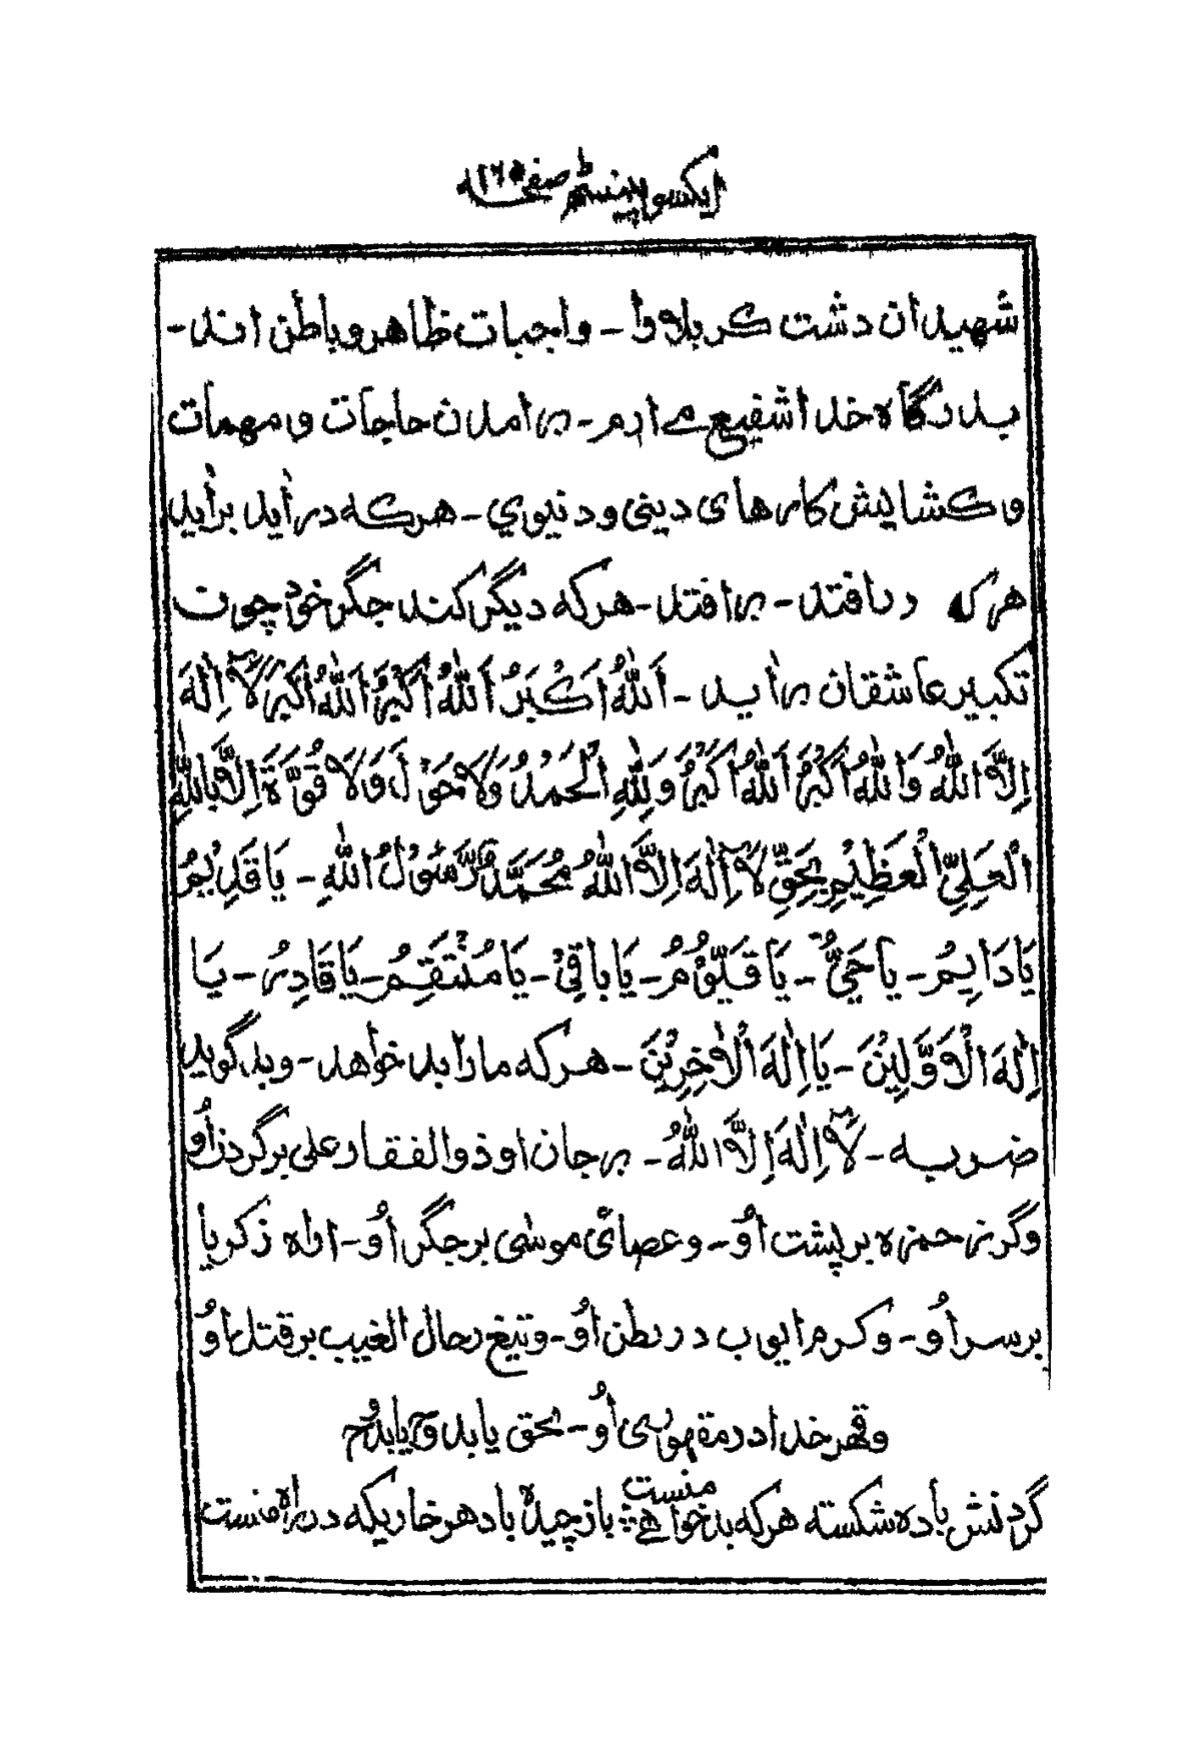 ایکسو پینسٹھ صفحہ ۱۶۵
شهیدان دشت کربلا را - واجبات ظاهر و باطن اند -
بدرگاه خدا شفیع مے ارم - برامدن حاجات و مهمات
و کشایش کارهای دینی و دنیوي - هرکه درأید برأید
هرکه درافتد - برافتد - هرکه دیگر کند جگر خود چون
تکبیر عاشقان برأید - اَللّٰهُ اَکْبَرُ اَللّٰهُ اَکْبَرُ اَللّٰهُ اَکْبَرُ لَآ اِلٰهَ
اِلَّا اللّٰهُ وَاللّٰهُ اَکْبَرُ اَللّٰهُ اَکْبَرُ وَلِلّٰهِ الْحَمْدُ وَلَا حَوْلَ وَلَا قُوَّةَ اِلَّا بِاللّٰهِ
الْعَلِیِّ الْعَظِیْمِ بِحَقِّ لَآ اِلٰهَ اِلَّا اللّٰهُ مُحَمَّدٌ رَّسُوْلُ اللّٰهِ - یَا قَدِیْمُ
یَا دَایِمُ - یَا حَیُّ - یَا قَیُّوْمُ - یَا بَاقِیْ - یَا مُنْتَقِمُ - یَا قَادِرُ - یَا
اِلٰهَ الْاَوَّلِیْنَ - یَا اِلٰهَ الْاٰخِرِیْنَ - هرکه مارا بد خواهد - و بد گوید
ضربه - لَآ اِلٰهَ اِلَّا اللّٰهُ - برجان او ذوالفقار علی برگردن اُو
و گرز حمزه بر پشت اُو - و عصائ موسی بر جگر اُو - اره زکریا
بر سر اُو - و کرم ایوب در بطن اُو - و تیغ رجال الغیب بر قتل اُو
و قهر خدا در مقهوری اُو - بحق یا بدوح یا بدوح
گردنش باده شکسته هرکه بد خواهے منست باز چیده باد هر خاریکه در راه منست